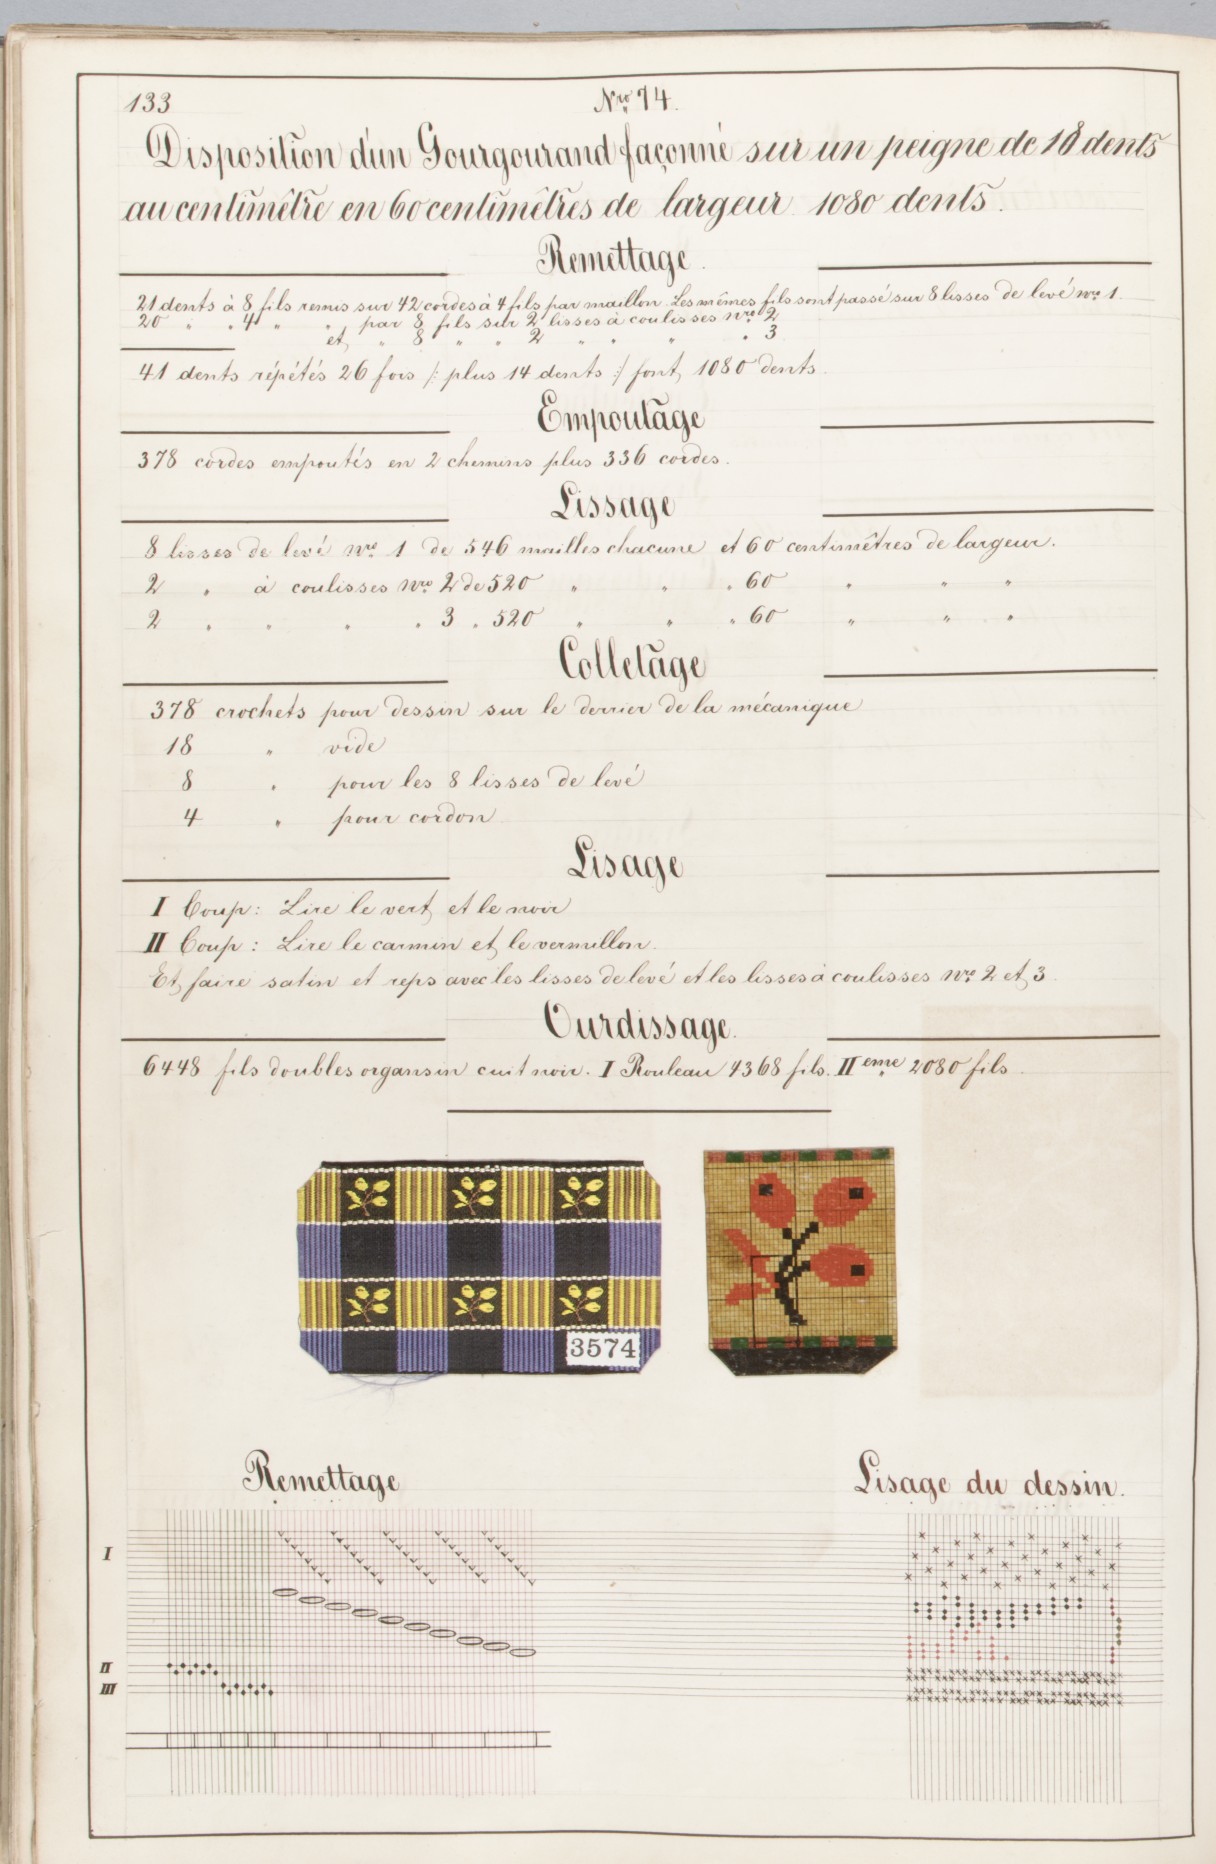 133
Nro 74.
Disposition d'un Gourgourand façonné sur un peigne de 18 dents
au centimètre en 60 centimêtres de largeur 1080 dents.
Remettage.
21 dents à 8 fils remis sur 42 cordes à 4 fils par maillon. Les mêmes fils sont passé sur 8 lisses de levé nro 1.
20 " " 4 " " , par 8 fils sur 2 lisses à coulisses nro 2
et " 8 " " 2 " " " " 3
41 dents répétés 26 fois /: plus 14 dents :/ font 1080 dents.
Empoutage
378 cordes empoutés en 2 chemins plus 336 cordes.
Lissage
8 lisses de levé nro 1 de 546 mailles chacune et 60 centimêtres de largeur.
2 " à coulisses nro 2 de 520 " " " 60 " " "
2 " " " " 3 " 520 " " " 60 " " "
Colletage
378 crochets pour dessin sur le derrier de la mécanique
18 " vide
8 " pour les 8 lisses de levé
4 " pour cordon
Lisage
I Coup: Lire le vert et le noir
II Coup: Lire le carmin et le vermillon.
Et faire satin et reps avec les lisses de levé et les lisses à coulisses nro 2 et 3.
Ourdissage.
6448 fils doubles organsin cuit noir. I Rouleau 4368 fils. IIeme 2080 fils.
3574
Remettage
Lisage du dessin.
I
II
III